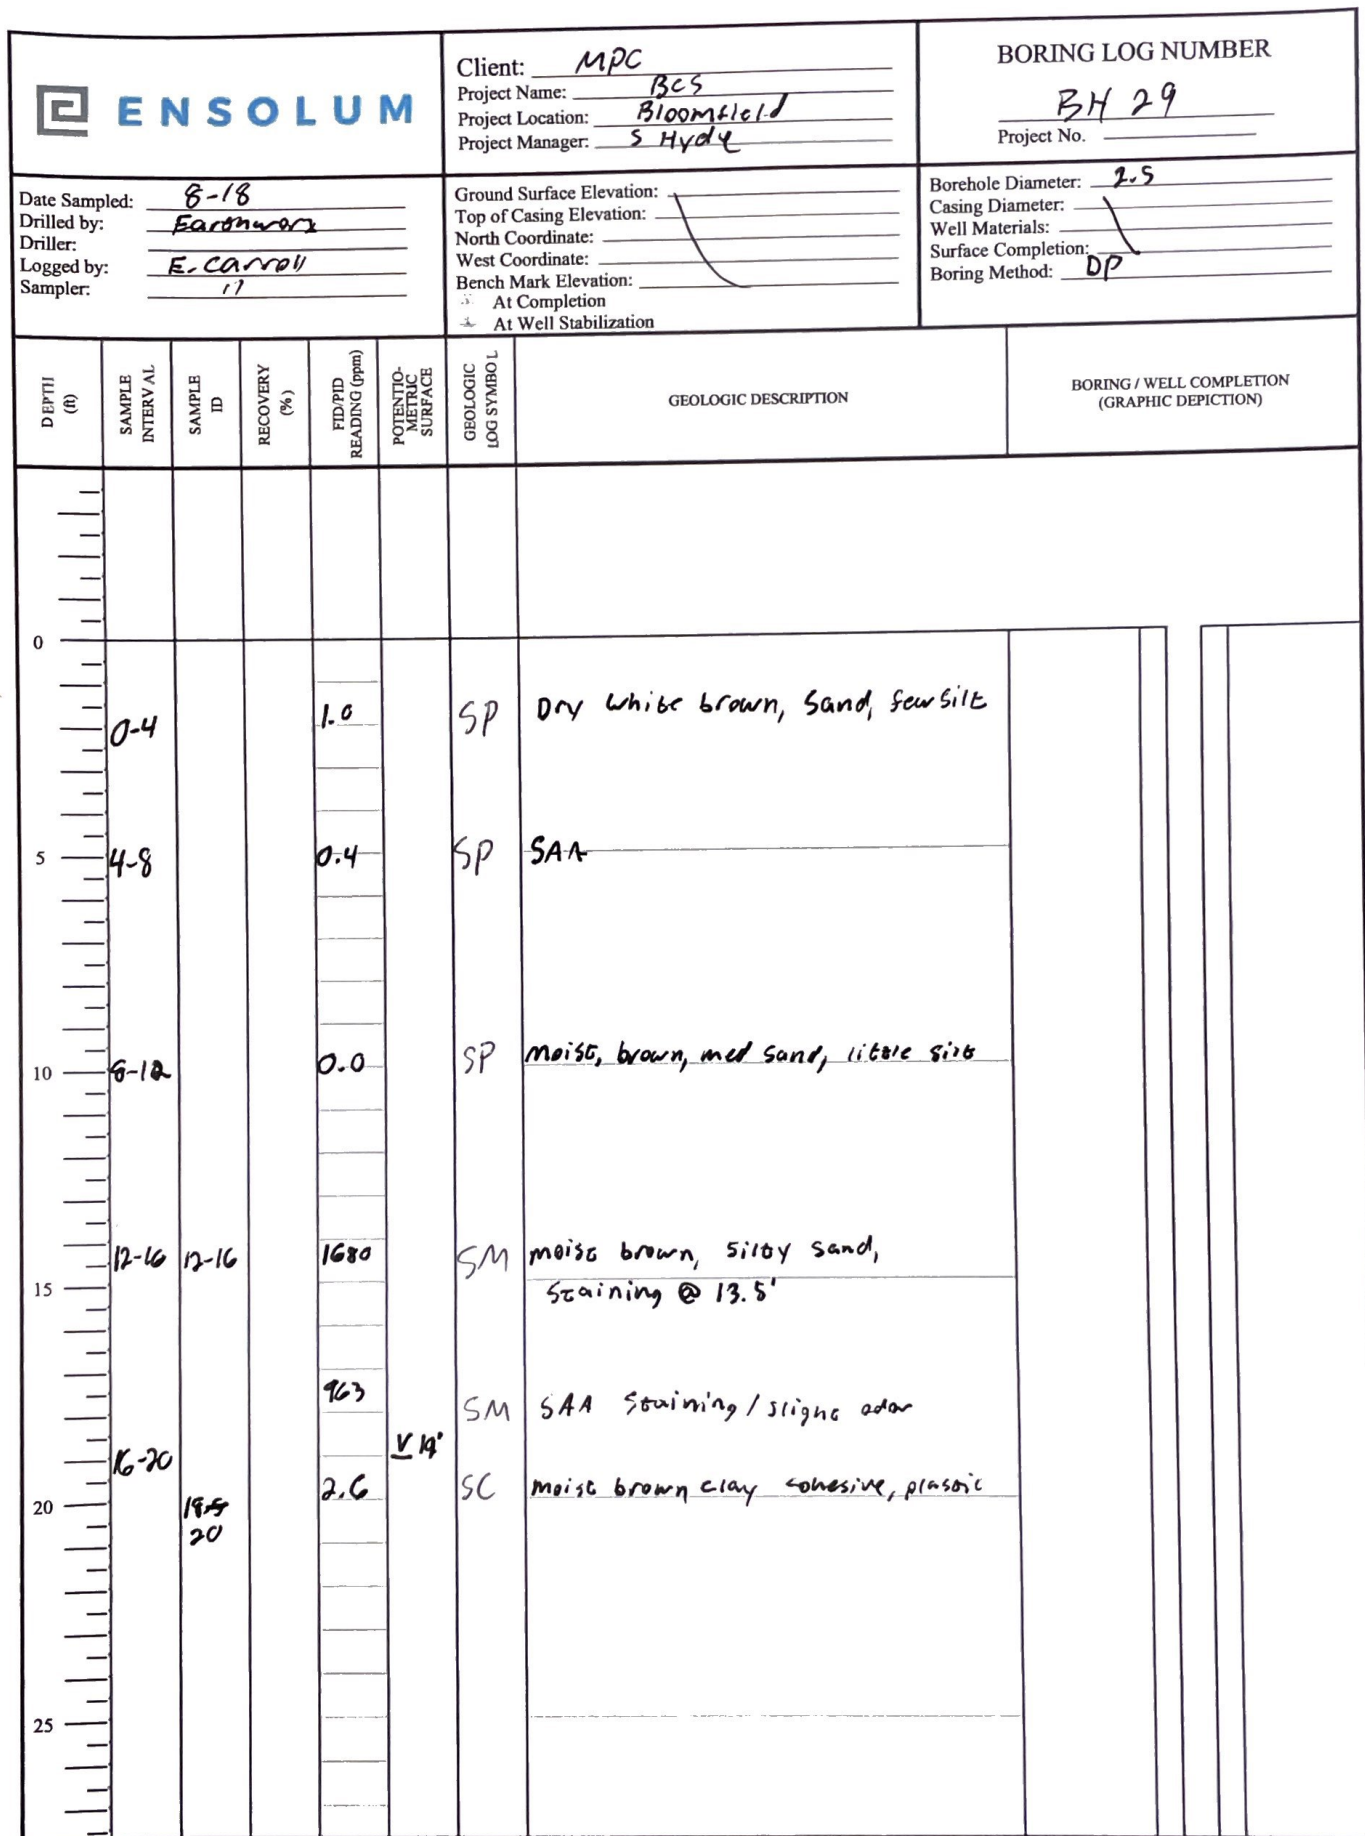 ENSOLUM
Client: MPC
Project Name: BCS
Project Location: Bloomfield
Project Manager: S Hyde
BORING LOG NUMBER
BH 29
Project No.
Date Sampled: 8-18
Drilled by: Earthworx
Driller:
Logged by: E. Carroll
Sampler: "
Ground Surface Elevation:
Top of Casing Elevation:
North Coordinate:
West Coordinate:
Bench Mark Elevation:
At Completion
At Well Stabilization
Borehole Diameter: 2.5
Casing Diameter:
Well Materials:
Surface Completion:
Boring Method: DP
DEPTH (ft)
SAMPLE INTERVAL
SAMPLE ID
RECOVERY (%)
FID/PID READING (ppm)
POTENTIO-METRIC SURFACE
GEOLOGIC LOG SYMBOL
GEOLOGIC DESCRIPTION
BORING / WELL COMPLETION
(GRAPHIC DEPICTION)
0
0-4 1.0 SP Dry white brown, sand, few silt
5 4-8 0.4 SP SAA
10 8-12 0.0 SP moist, brown, med sand, little silt
12-16 12-16 1680 SM moist brown, silty sand,
15 staining @ 13.5'
963 SM SAA staining/slight odor
16-20 V 19'
2.6 SC moist brown clay cohesive, plastic
20
20
25